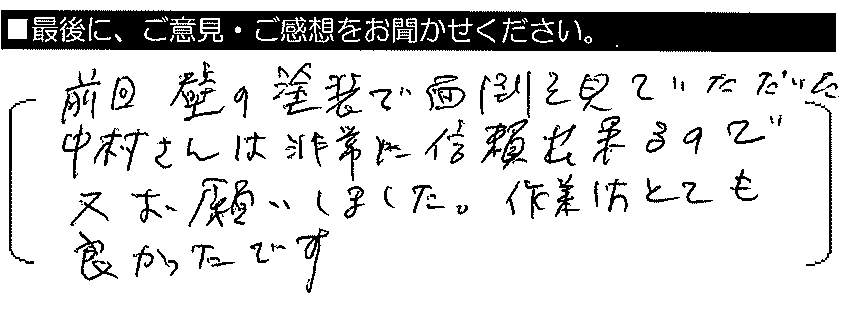 ■最後に、ご意見・ご感想をお聞かせください。
前回 壁の塗装で面倒を見ていただいた
中村さんは非常に信頼出来るので
又お願いしました。作業はとても
良かったです